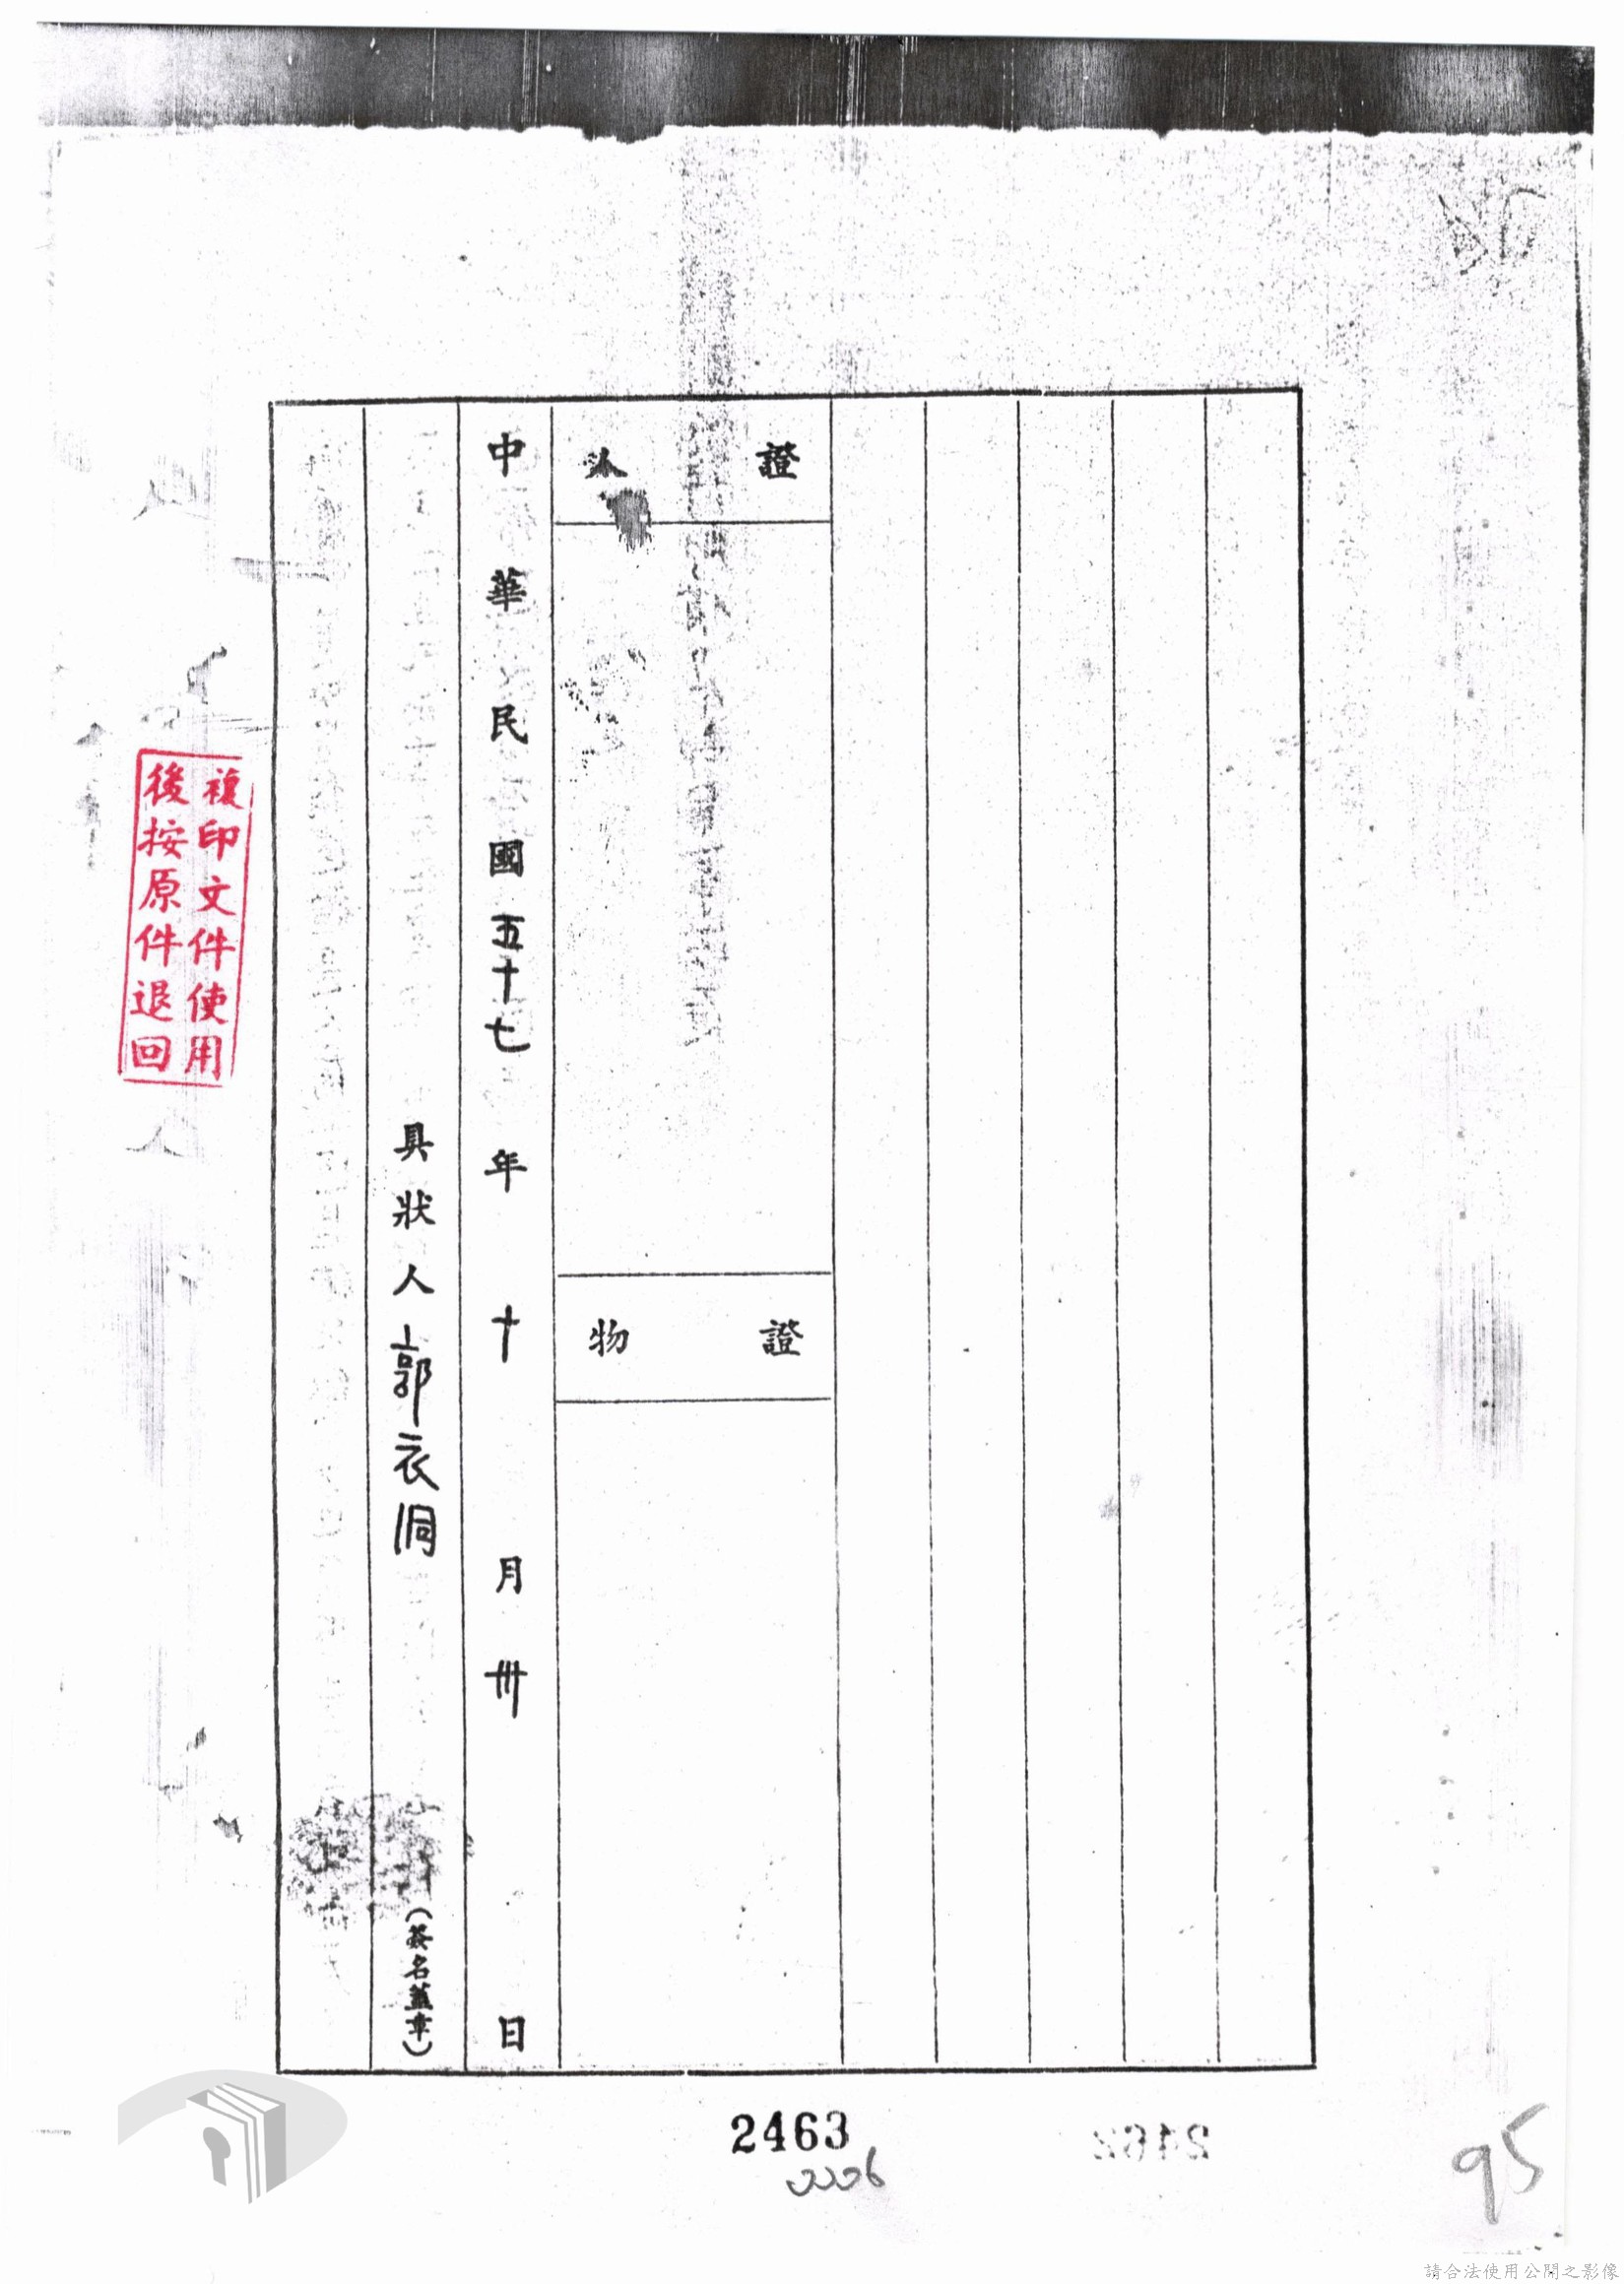 證人
證物
中華民國五十七年十月卅日
具狀人郭衣洞（簽名蓋章）
複印文件使用
後按原件退回
2463
2462
95
請合法使用公開之影像